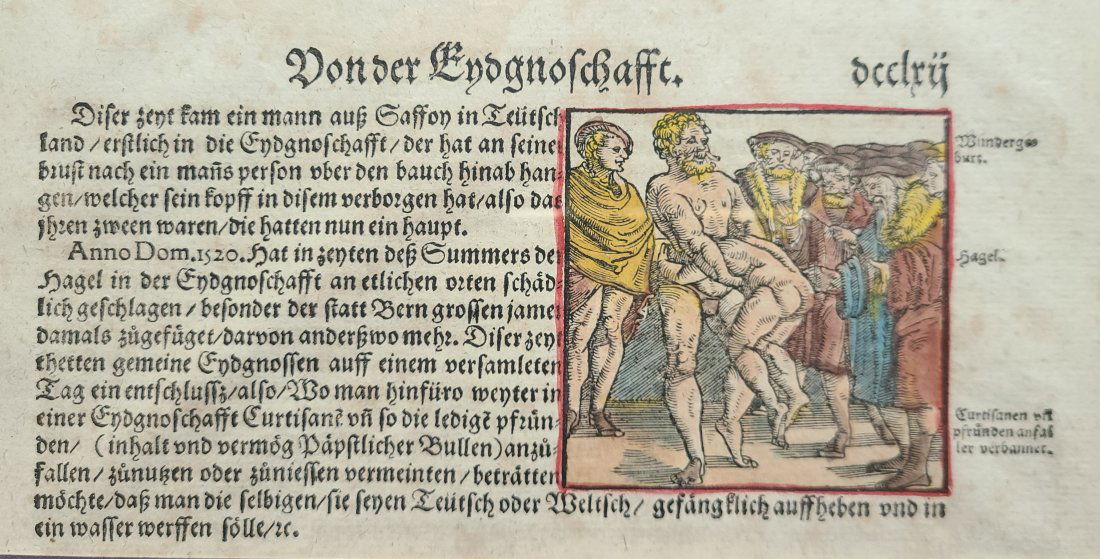 Von der Eydgnoschafft. dcclxij
Diser zeyt kam ein mann auß Saffoy in Teütsch
land / erstlich in die Eydgnoschafft / der hat an seine
brust nach ein mañs person vber den bauch hinab han-
gen / welcher sein kopff in disem verborgen hat / also das
jhren zween waren / die hatten nun ein haupt.
Anno Dom. 1520. Hat in zeyten deß Summers der
Hagel in der Eydgnoschafft an etlichen orten schäd-
lich geschlagen / besonder der statt Bern grossen jamer
damals zůgefüget / darvon anderßwo mehr. Diser zeyt
thetten gemeine Eydgnossen auff einem versamleten
Tag ein entschlussz / also / Wo man hinfüro weyter in
einer Eydgnoschafft Curtisanẽ vñ so die ledigẽ pfrün-
den / (inhalt vnd vermög Päpstlicher Bullen) anzů-
fallen / zůnutzen oder zůniessen vermeinten / beträtten
möchte / daß man die selbigen / sie seyen Teütsch oder Weltsch / gefängklich auffheben vnd in
ein wasser werffen sölle / ꝛc.
Wundergeburt.
Hagel.
Curtisanen vñ
pfründen anfal
ler verbannet.